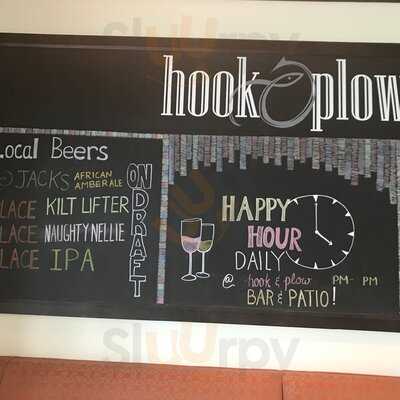 hook & plow
Local Beers
JACKS AFRICAN AMBER ALE
LACE KILT LIFTER
LACE NAUGHTY NELLIE
LACE IPA
ON DRAFT
HAPPY
HOUR
DAILY
@ hook & plow PM- PM
BAR & PATIO!
Slurpy